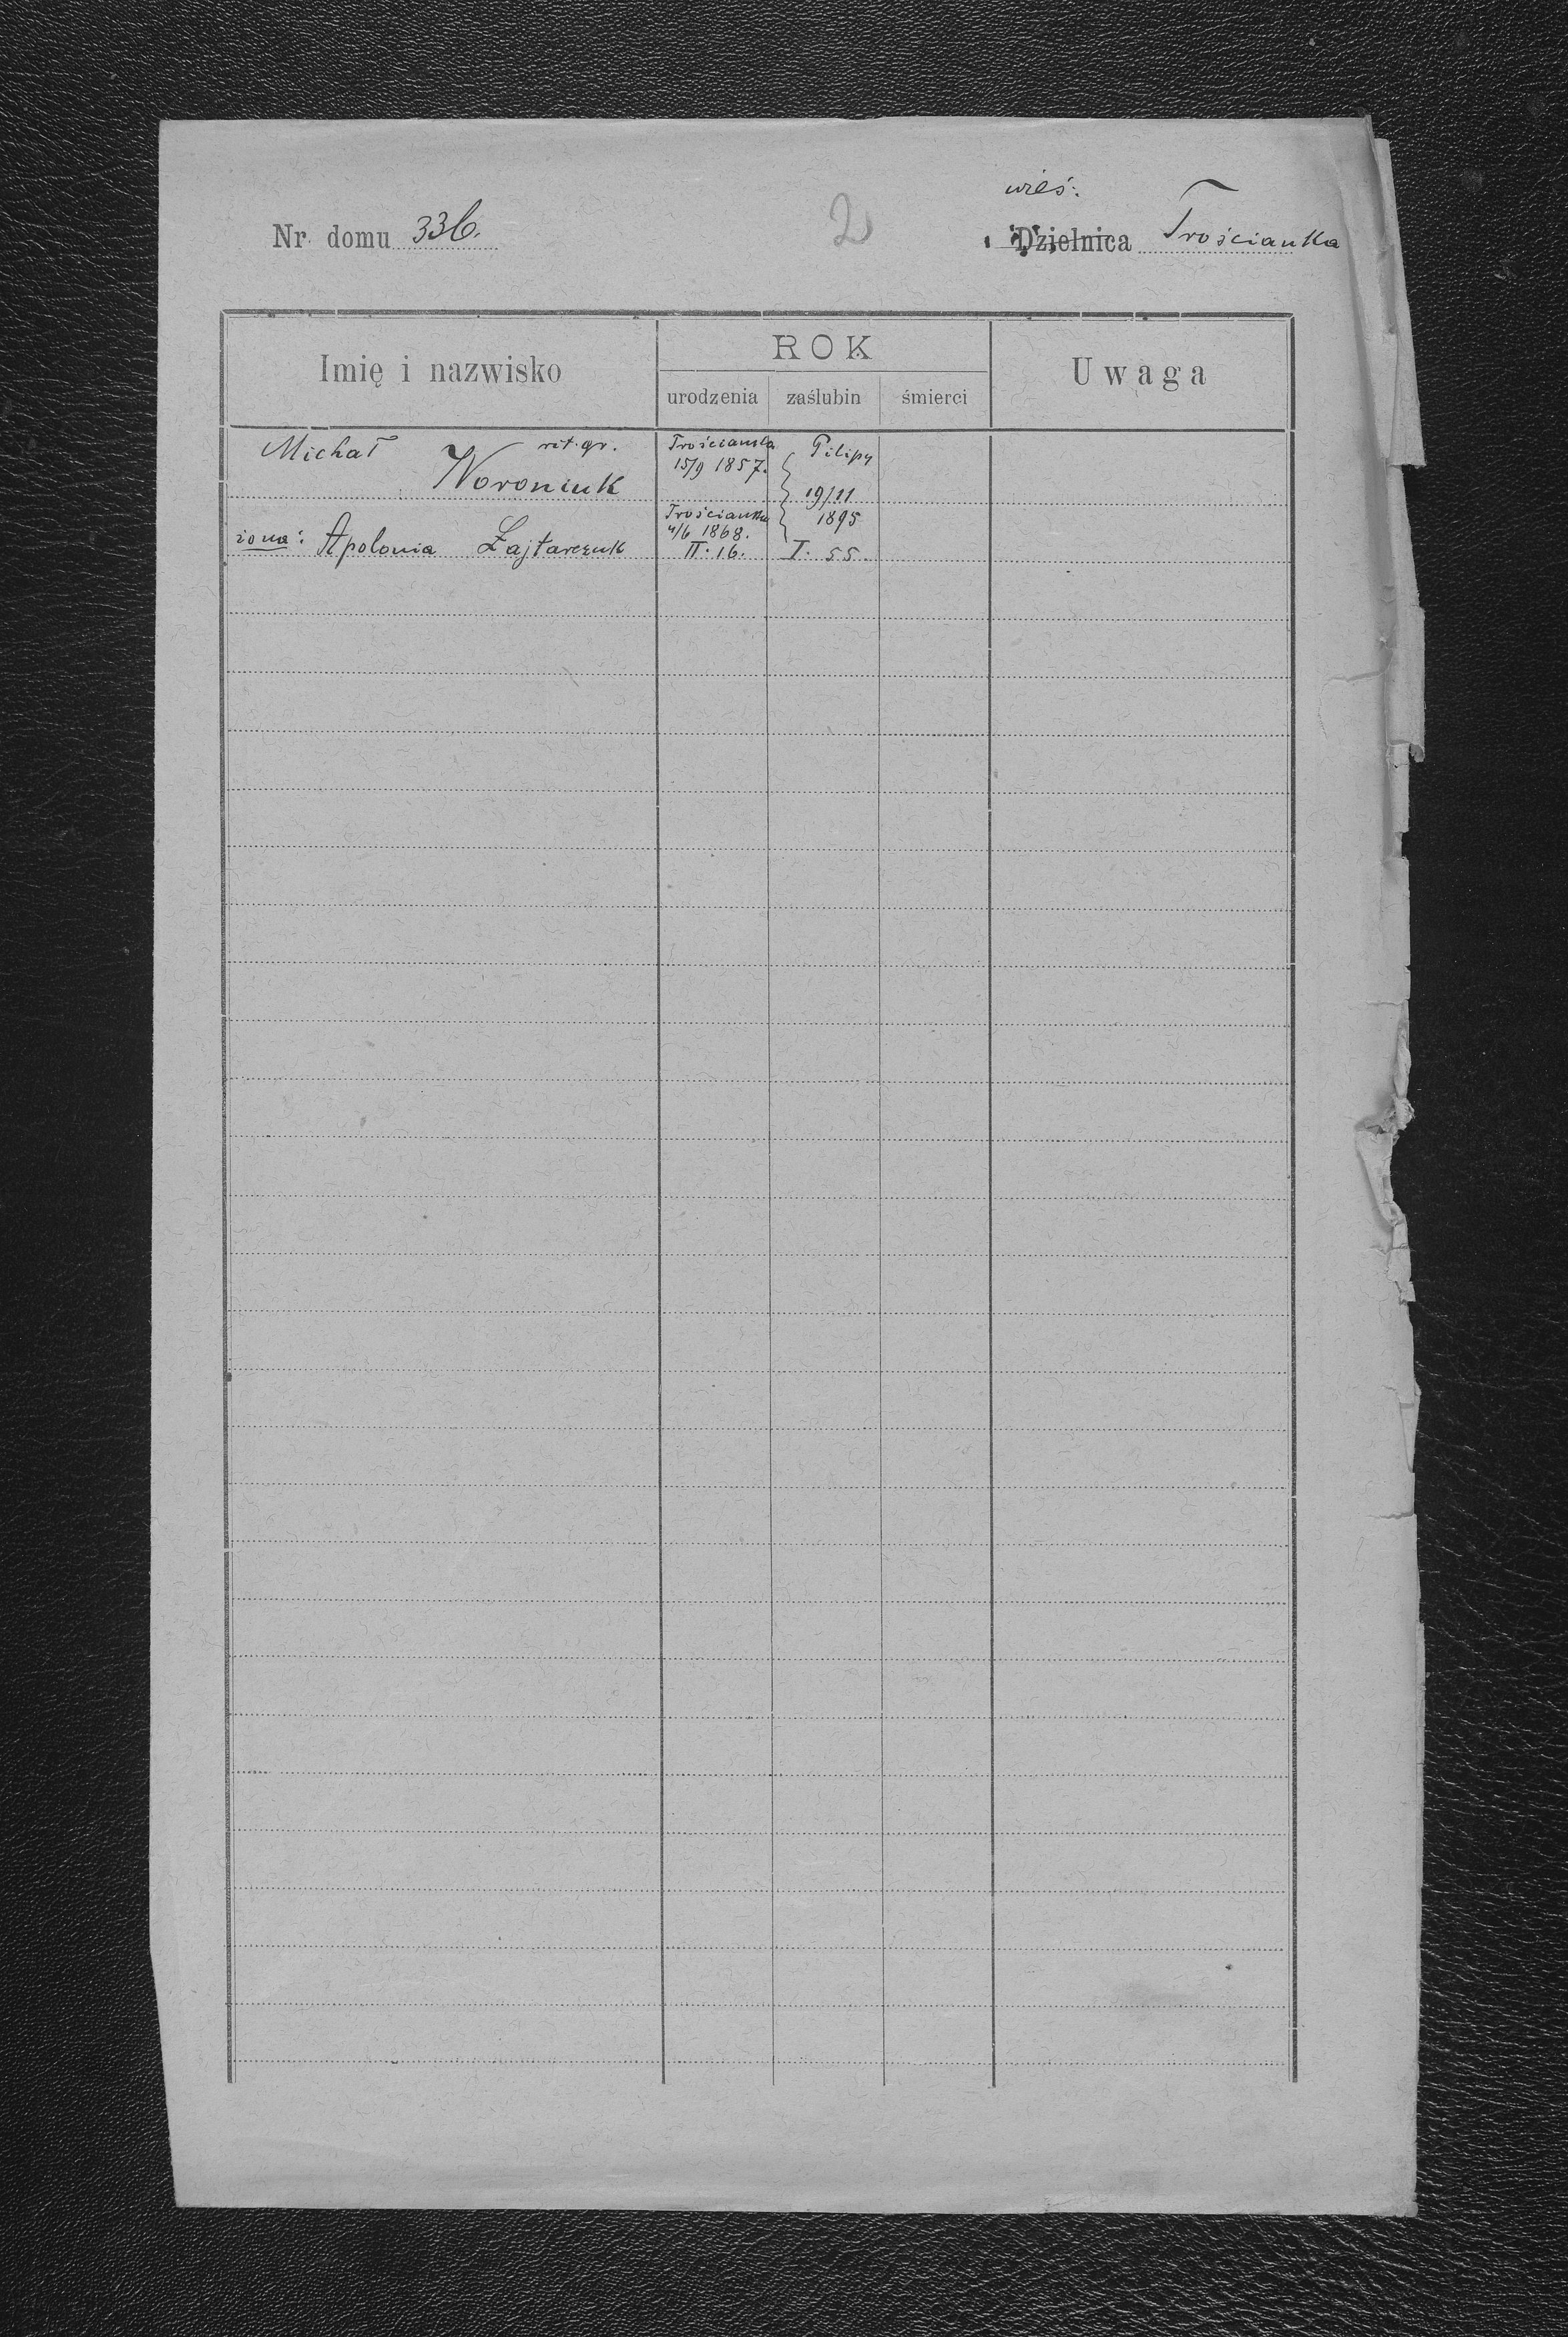 wieś:
Nr. domu 336.
2
Dzielnica Trościanka
Imię i nazwisko
ROK
urodzenia
zaślubin
śmierci
Uwaga
Michał rit. gr.
Woroniuk
Trościanka
15/9 1857.
Filipy
19/11
1895
I. 55.
żona: Apolonia Łajtarczuk
Trościanka
4/6 1868.
II. 16.